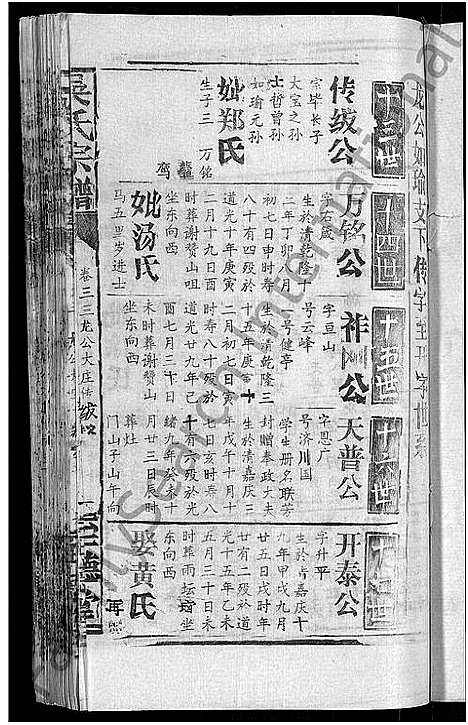 龙公妣瑜支下传字至开字世系
十三世
传绂公
宗毕长子
大宝之孙
士哲曾孙
如瑜元孙
妣郑氏
生子三 万铭
十四世
万铭公
字右箴
生於清乾隆十
二年丁卯八月
初七日申时寿
八十有四殁於
道光十年庚寅
二月十九日酉
时葬谢赞山咀
坐东向西
妣汤氏
马五里岁进士
十五世
祚网公
字亘山
号云峰
号健亭
生於清乾隆三
十五年庚
二月初七日寅
时寿八十殁於
道光廿九年己
酉七月三十日
未时葬谢赞山
坐东向西
十六世
天普公
字恩广
号济川国
学生册名联芳
封赠奉政大夫
生於清嘉庆三
年戊午十月十
七日亥时寿八
十有六殁於光
绪九年癸未十
月廿三日辰时
葬灶
门山子山午向
开泰公
字升平
生於清嘉庆十
九年甲戌九月
廿五日戌时年
廿有二殁於道
光十五年乙未
五月三十日未
时葬雨坛坐
东向西
娶黄氏
吴氏宗谱
卷三三龙公大庄传绂公
一